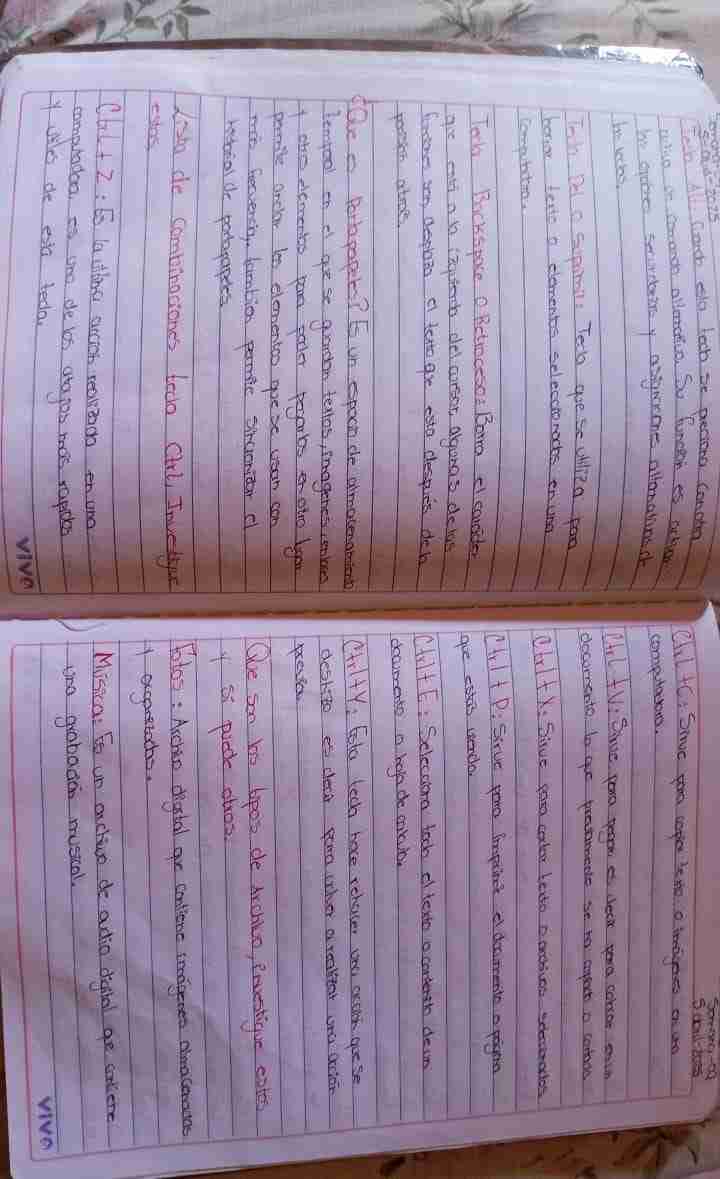 Tecla Alt: Cuando esta tecla se presiona cambia
de comando alternativa. Su función es activar
las opciones secundarias y asignaciones alternativas de
las teclas.
Tecla Del o Suprimir: Tecla que se utiliza para
borrar texto o elementos seleccionados en una
computadora.
Tecla Backspace o Retroceso: Borra el carácter
que está a la izquierda del cursor, algunas de las
funciones son, desplaza el texto que esta después de la
posición atras.
¿Que es Portapapeles? Es un espacio de almacenamiento
temporal en el que se guardan textos, imagenes, enlaces
y otros elementos para poder pegarlos en otro lugar
permite anclar los elementos que se usan con
más frecuencia, también permite sincronizar el
historial de portapapeles
Lista de combinaciones tecla Ctrl, Investigue
estos
Ctrl + Z: Es la última acción realizada en una
computadora es uno de los atajos más rapidos
y utiles de esta tecla.
VIVA
Semana-09
5 abril 2023
Ctrl+C: Sirve para copiar texto o imágenes en una
computadora.
Ctrl+V: Sirve para pegar es decir para colocar en un
documento lo que previamente se ha copiado o cortado
Ctrl+X: Sirve para cortar texto o archivos seleccionados
Ctrl+P: Sirve para imprimir el documento o página
que estás viendo.
Ctrl+E: Selecciona todo el texto o contenido de un
documento o hoja de cálculo.
Ctrl+Y: Esta tecla hace rehacer una acción que se
deshizo es decir para volver a realizar una acción
previa.
Que son los tipos de Archivo, investigue estos
y si puede otros.
Fotos: Archivo digital que contiene imágenes almacenadas
y organizadas.
Música: Es un archivo de audio digital que contiene
una grabación musical.
VIVA